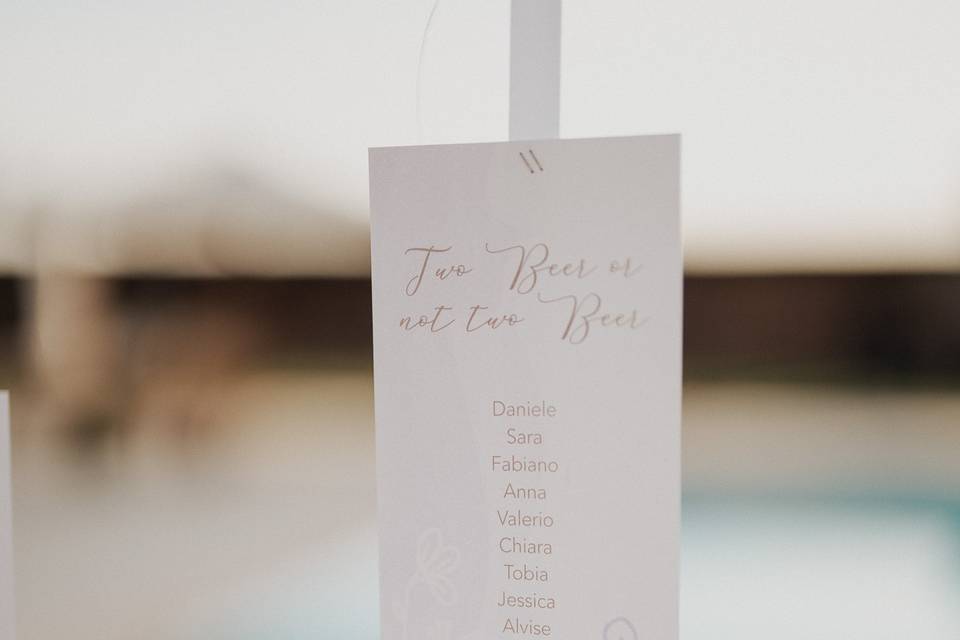 Two Beer or
not two Beer
Daniele
Sara
Fabiano
Anna
Valerio
Chiara
Tobia
Jessica
Alvise